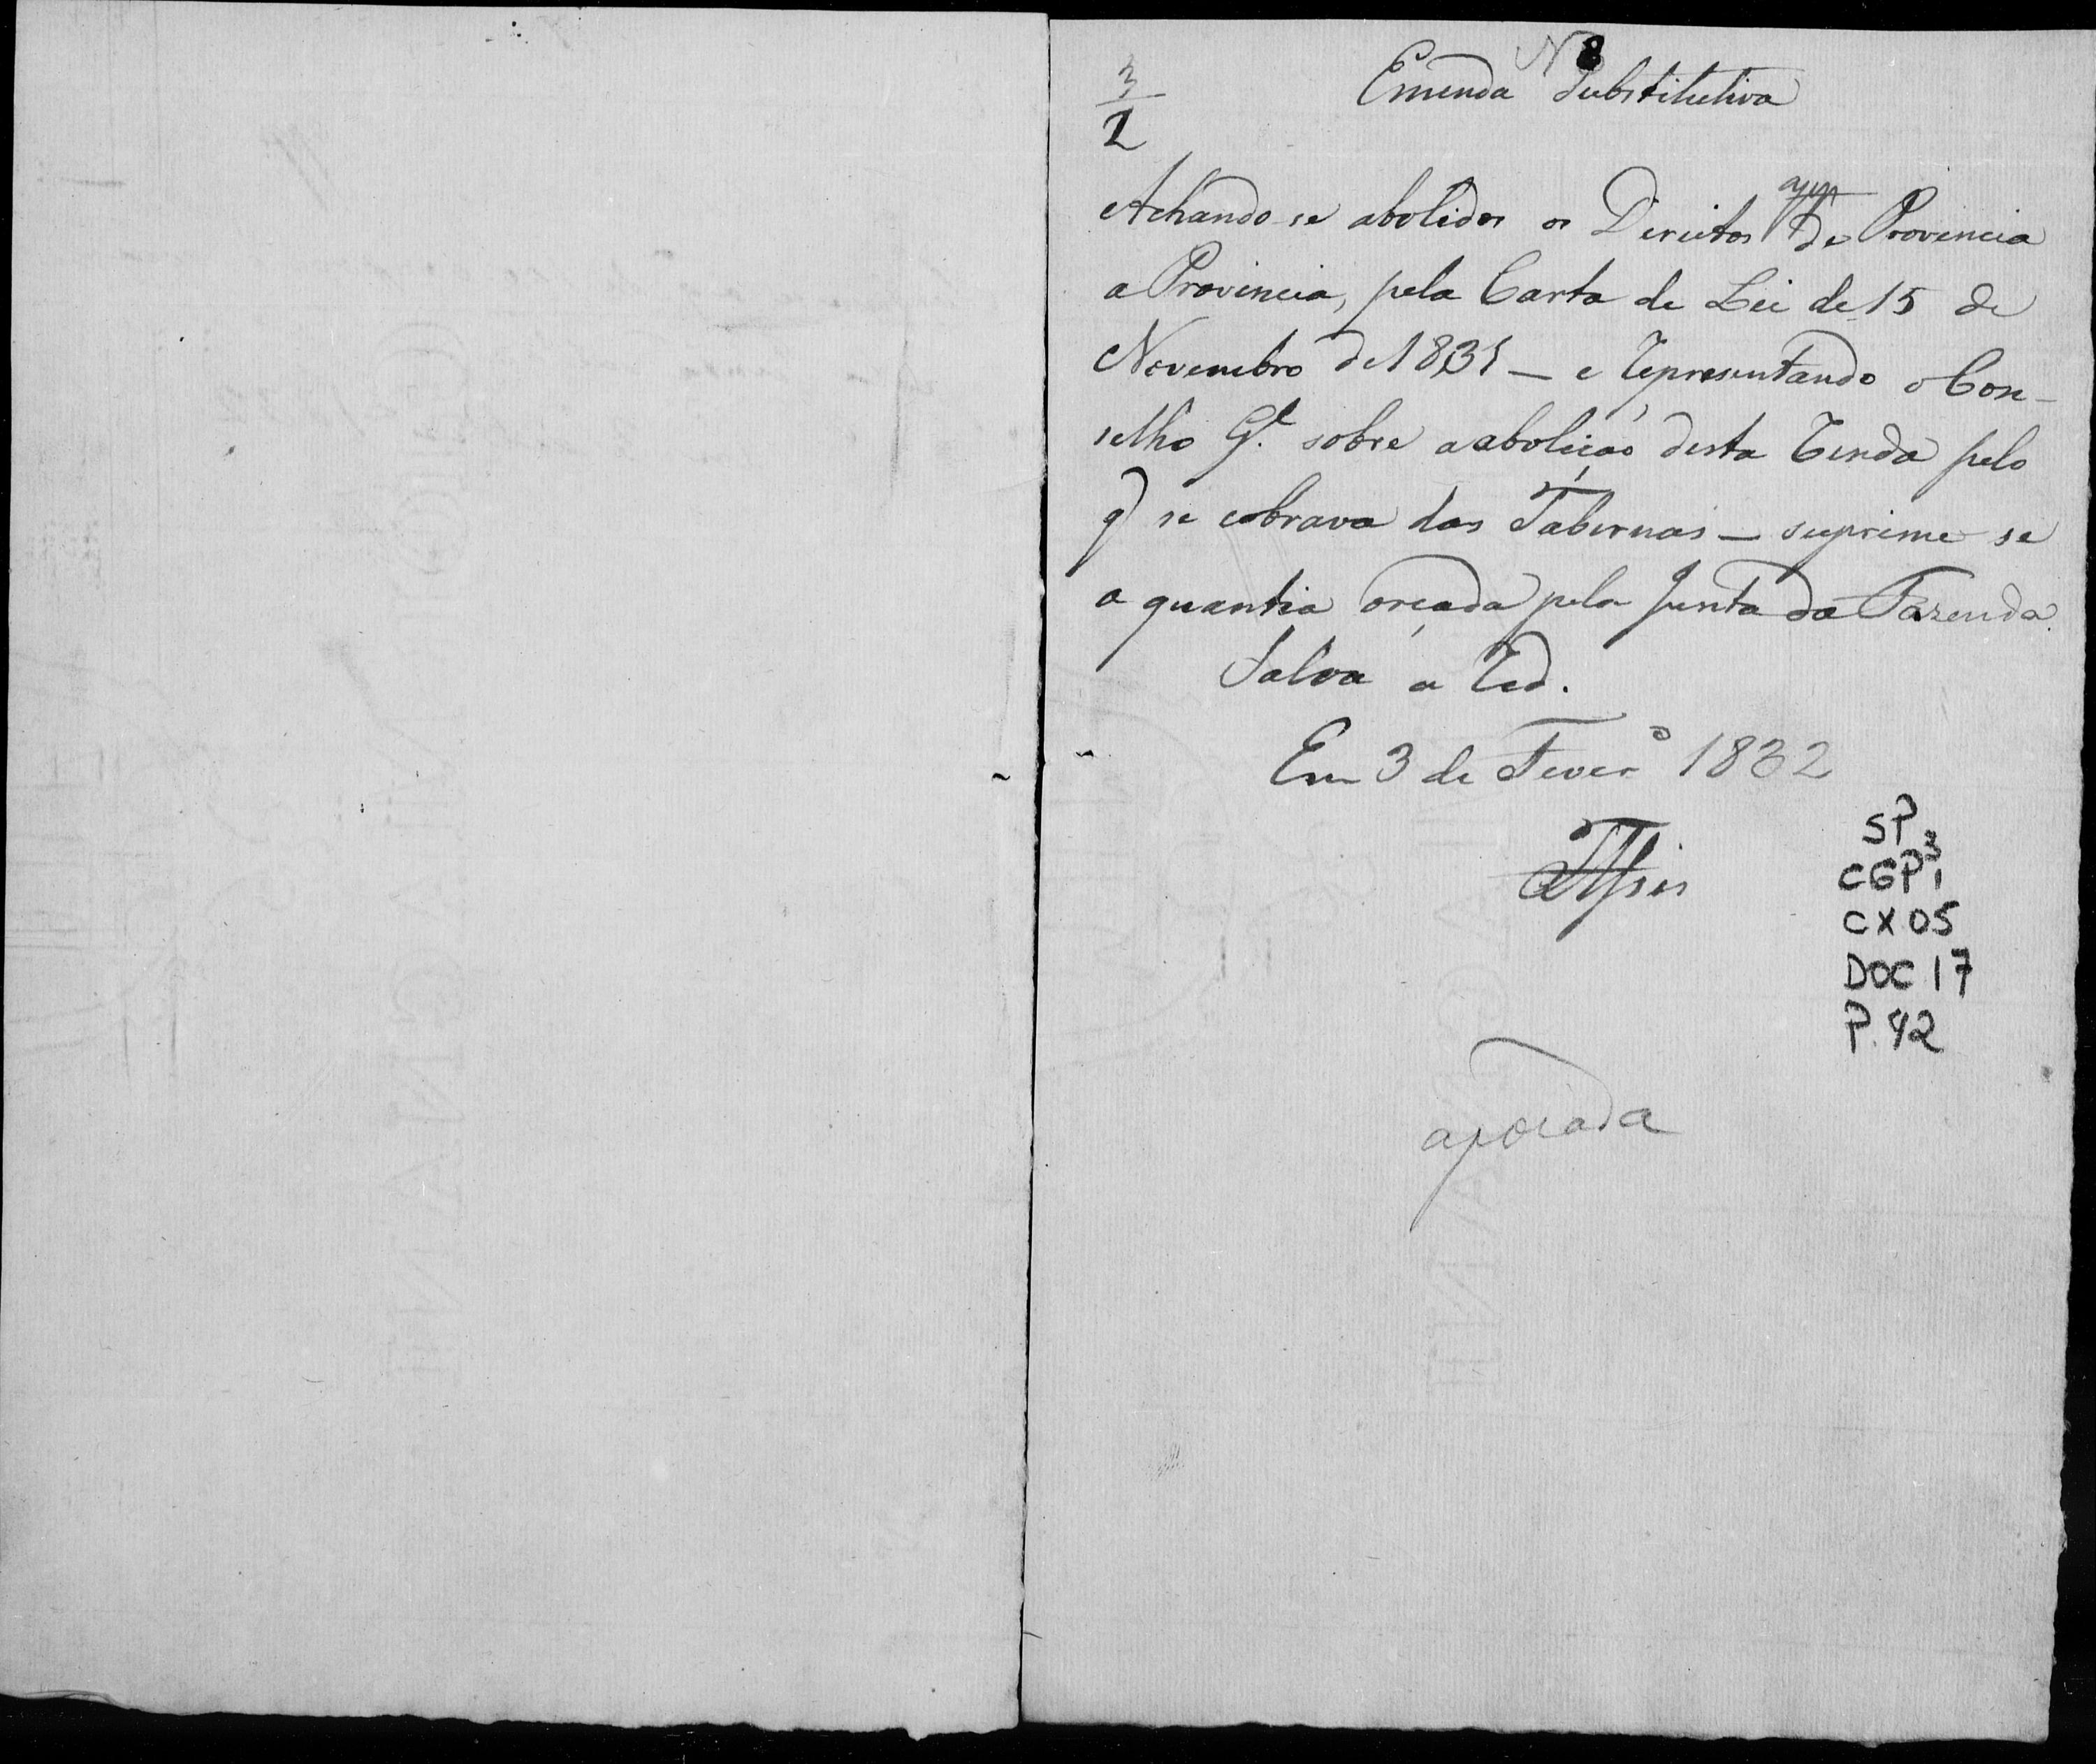 N 8
3
2
Emenda Substitutiva
Achando-se abolidos os Direitos de Provincia
a Provincia, pela Carta de Lei de 15 de
Novembro de 1831 — e representando o Con-
selho G.l sobre a aboliçaõ desta renda pelo
q se cobrava das Tabernas — suprime se
a quantia orçada pela Junta da Fazenda.
Salva a red.
Em 3 de Fever.o 1832
apoiada
SP
CGP 3
1
CX 05
DOC 17
P. 42